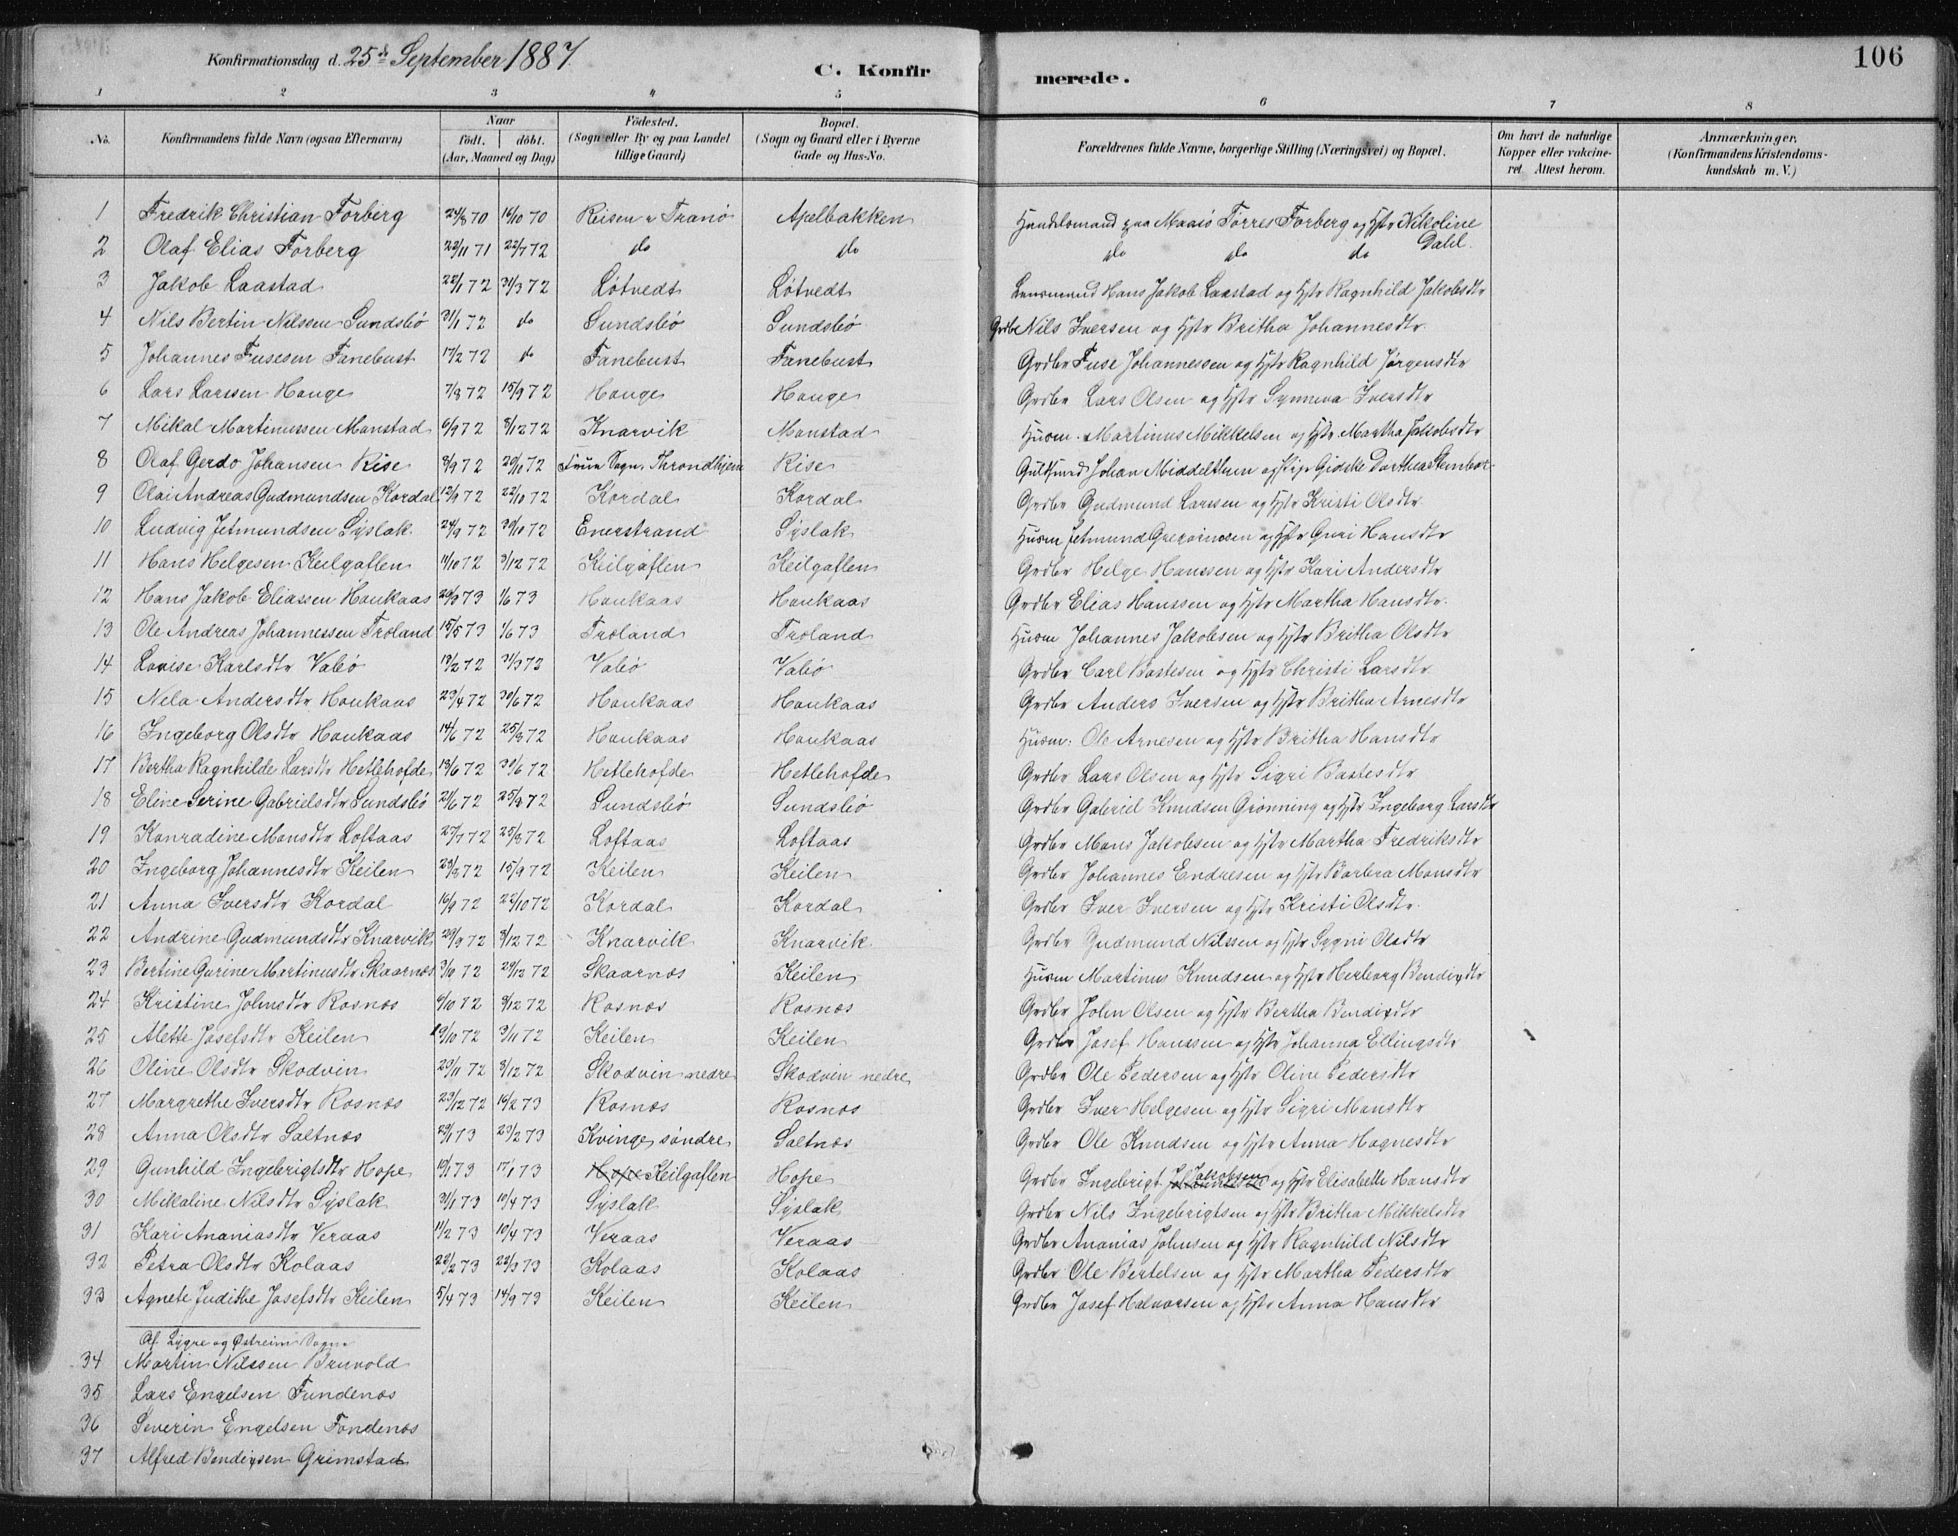 106
Konfirmationsdag d. 25de September 1887
C. Konfirmerede.
1 2 3 4 5 6 7 8
No. Konfirmandens fulde Navn (ogsaa Efternavn) Naar födt. döbt. (Aar, Maaned og Dag) Födested. (Sogn eller By og paa Landet tillige Gaard) Bopæl. (Sogn og Gaard eller i Byerne Gade og Hus-No. Forældrenes fulde Navne, borgerlige Stilling (Næringsvei) og Bopæl. Om havt de naturlige Kopper eller vakcineret Attest herom. Anmærkninger, (Konfirmandens Kristendomskundskab m. V.)
1 Fredrik Christian Forberg 70 16/10 70 Reisen i Tranö Apelbakken Handelsmand paa Maasö Torres Forberg og Hstr Nikoline Dahl.
2 Olaf Elias Forberg 22/11 71 22/7 72 do do do do do
3 Jakob Laastad 22/1 72 31/3 72 Løtvedt Løtvedt Lensmand Hans Jakob Laastad og Hstr Ragnhild Jakobsdtr
4 Nils Bertin Nilssen Sundsbö 31/1 72 do Sundsbö Sundsbö Grdbr Nils Iversen og Hstr Britha Johannesdtr
5 Johannes Fusesen Fanebust 17/2 72 do Fanebust Fanebust Grdbr Fuse Johannessen og Hstr Ragnhild Jørgensdtr
6 Lars Larssen Hauge 7/8 72 15/9 72 Hauge Hauge Grdbr Lars Olsen og Hstr Synneva Iversdtr
7 Mikal Martinussen Monstad 6/9 72 8/12 72 Knarvik Monstad Husm. Martinus Mikkelsen og Hstr Martha Jakobsdtr
8 Olaf Gerdo Johansen Rise 8/9 72 20/10 72 Frue Sogn, Throndhjem Rise Guldsmed Johan Middelthun og Pige Gidske Dorthea
9 Olai Andreas Gudmundsen Kordal 12/9 72 22/10 72 Kordal Kordal Grdbr Gudmund Larssen og Hstr Kristi Olsdtr
10 Ludvig Jetmundsen Syslak 24/9 72 30/10 72 Enerstrand Syslak Husm Jetmund og Hstr Guri Hansdtr
11 Hans Helgesen Keilgaflen 11/10 72 3/12 72 Keilgaflen Keilgaflen Grdbr Helge Hanssen og Hstr Kari Andersdtr
12 Hans Jakob Eliassen Haukaas 73 1/6 73 Haukaas Haukaas Grdbr Elias Hanssen og Hstr Martha Hansdtr.
13 Ole Andreas Johannessen Troland 15/5 73 1/6 73 Troland Troland Husm Johannes Jakobsen og Hstr Britha Olsdtr
14 Lovise Karlsdtr Valö 19/2 72 31/3 72 Valö Valö Grdbr Carl Bastesen og Hstr Christi Larsdtr.
15 Nela Andersdtr Haukaas 23/4 72 30/6 72 Haukaas Haukaas Grdbr Anders Iversen og Hstr Britha Arnesdtr
16 Ingeborg Olsdtr Haukaas 14/6 72 25/8 72 Haukaas Haukaas Husm: Ole Arnesen og Hstr Britha Hansdtr
17 Bertha Ragnhilde Larsdtr Hetlehofde 13/6 72 30/6 72 Hetlehofde Hetlehofde Grdbr Lars Olsen og Hstr Sigri Bastesdtr
18 Eline Serine Gabrielsdtr Sundsbö 21/6 72 25/8 72 Sundsbö Sundsbö Grdbr Gabriel Knudsen Grønning og Hstr Ingeborg Larsdtr
19 Konradine Monsdtr Loftaas 27/7 72 25/8 72 Loftaas Loftaas Grdbr Mons Jakobsen og Hstr Martha Fredriksdtr
20 Ingeborg Johannesdtr Keilen 23/8 72 15/9 72 Keilen Keilen Grdbr Johannes Endresen og Hstr Barbra Monsdtr
21 Anna Iversdtr Kordal 16/9 72 22/10 72 Kordal Kordal Grdbr Iver Iversen og Hstr Kristi Olsdtr.
22 Andrine Gudmundsdtr Knarvik 29/9 72 8/12 72 Knarvik Knarvik Grdbr Gudmund Nilssen og Hstr Sygni Olsdtr
23 Bertine Gurine Martinusdtr Skaarnæs 3/10 72 29/12 72 Skaarnæs Keilen Husm Martinus Knudsen og Hstr Herborg Bendixdtr
24 Kristine Johnsdtr Rosnæs 6/10 72 8/12 72 Rosnæs Rosnæs Grdbr John Olsen og Hstr Bertha Bendixdtr
25 Alette Josefsdtr Keilen 19/10 72 3/11 72 Keilen Keilen Grdbr Josef Hanssen og Hstr Johanna Ellingsdtr
26 Oline Olsdtr Skodvin 23/11 72 8/12 72 Skodvin nedre Skodvin nedre Grdbr Ole Pedersen og Hstr Oline Pedersdtr
27 Margrethe Iversdtr Rosnæs 23/12 72 16/2 73 Rosnæs Rosnæs Grdbr Iver Helgesen og Hstr Sigri Monsdtr
28 Anna Olsdtr Saltnæs 29/1 73 23/2 73 Kvinge söndre Saltnæs Grdbr Ole Knudsen og Hstr Anna Hagnesdtr
29 Gunhild Ingebrigtsdtr Hope 10/1 73 17/1 73 Hope Keilgaflen Hope Grdbr Ingebrigt Jakobsen og Hstr Elisabeth Hansdtr
30 Mikaline Nilsdtr Syslak 31/1 73 10/4 73 Syslak Syslak Grdbr Nils Ingebrigtsen og Hstr Britha Mikkelsdtr
31 Kari Ananiasdtr Veraas 11/2 73 10/4 73 Veraas Veraas Grdbr Ananias Johnsen og Hstr Ragnhild Nilsdtr
32 Petra Olsdtr Kolaas 22/2 73 22/3 73 Kolaas Kolaas Grdbr Ole Bertelsen og Hstr Martha Pedersdtr
33 Agnete Judithe Josefsdtr Keilen 5/4 73 14/9 73 Keilen Keilen Grdbr Josef Halvorsen og Hstr Anna Hansdtr
Af Lygre og Østreim Sogne
34 Martin Nilssen Bruvold
35 Lars Engelsen Fundenæs
36 Severin Engelsen Fondenæs
37 Alfred Bendixsen Grimstad